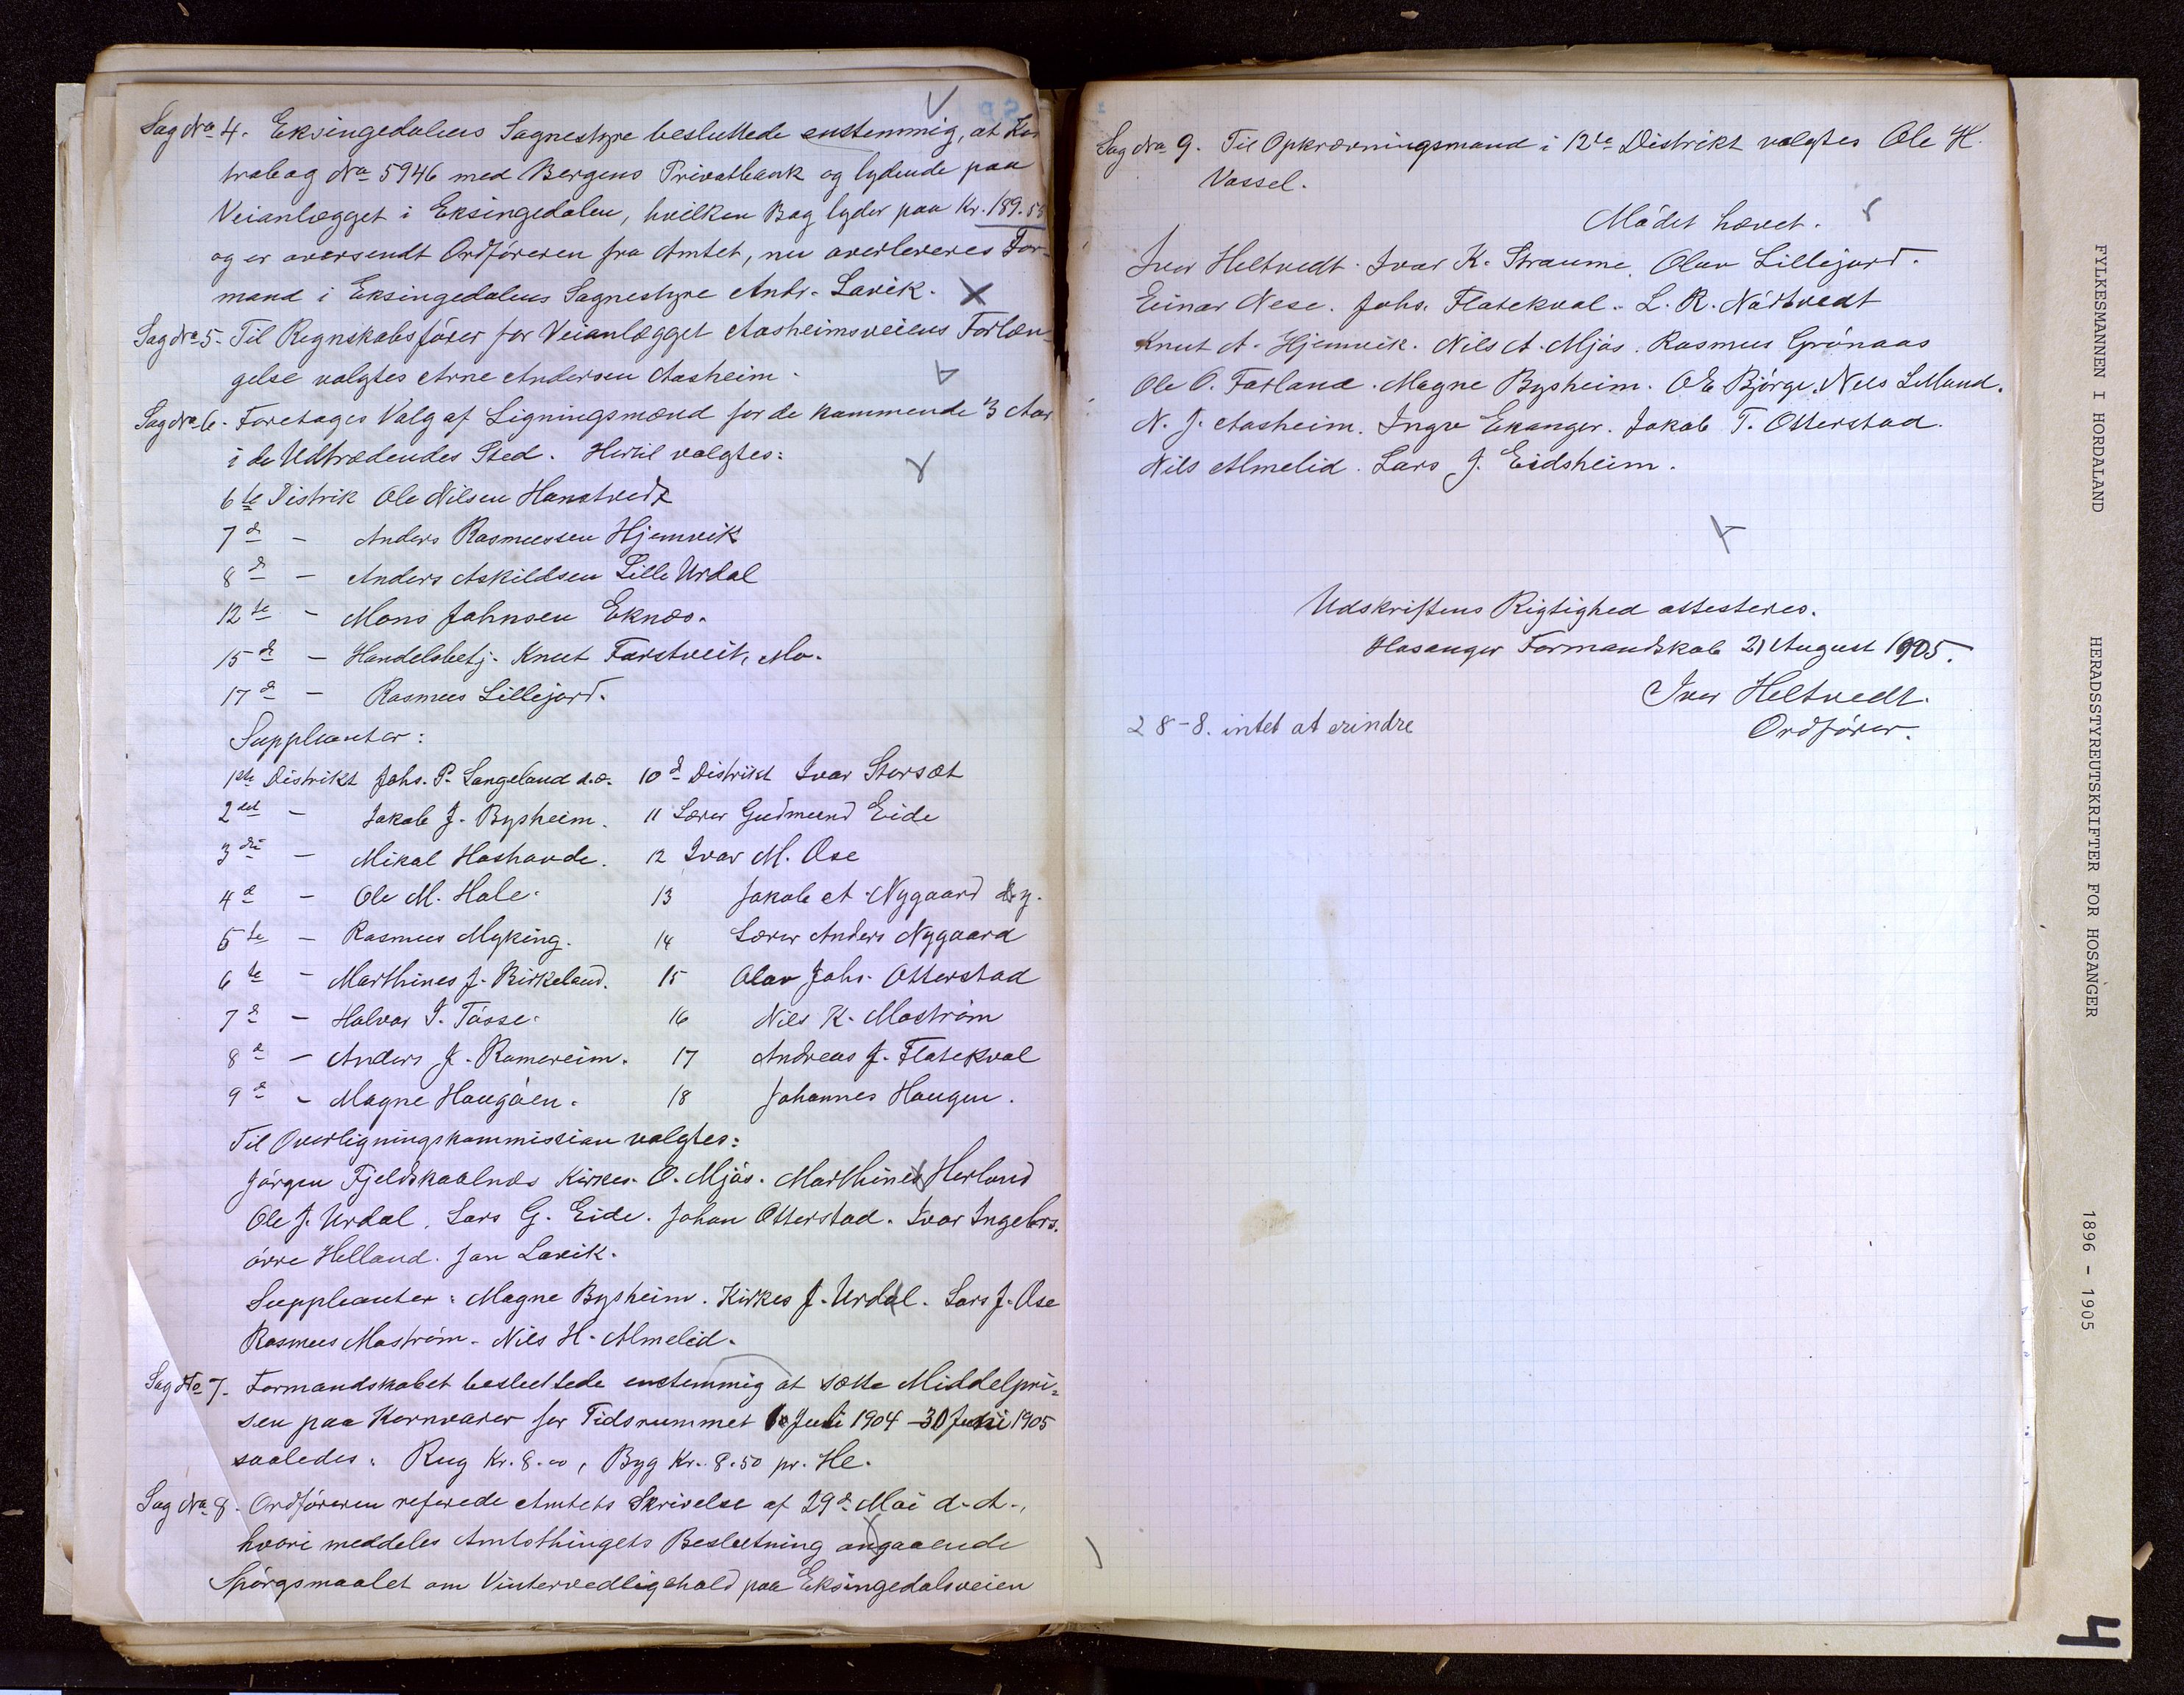 Sag No 4. Eksingedalens Sognestyre besluttede enstemmig, at Kon
trabog No 5946 med Bergens Privatbank og lydende paa
Veianlægget i Eksingedalen, hvilken Bog lyder paa Kr. 189.55
og er oversendt Ordföreren fra Amtet, nu overleveres For-
mand i Eksingedalens Sognestyre Andr. Lavik.
Sag No 5. Til Regnskabsförer for Veianlægget Aasheimsveiens Forlæn-
gelse valgtes Arne Andersen Aasheim.
Sag No 6. Foretages Valg af Ligningsmænd for de kommende 3 Aar
i de Udtrædendes Sted. Hertil valgtes:
6te Distrik Ole Nilsen Hanstvedt
7d - Anders Rasmussen Hjemvik
8d - Anders Askildsen Lille Urdal
12te - Mons Johnsen Eknæs.
15de - Handelsbetj. Knut Farstveit, Mo.
17d - Rasmus Lillejord.
Suppleanter:
1ste Distrikt Johs. P. Langeland d.æ. 10d Distrikt Ivar Storsæt
2det - Jakob J. Bysheim. 11 Lærer Gudmund Eide
3die - Mikal Hoshovde. 12 Ivar M. Ose
4d - Ole M. Hole. 13 Jakob A. Nygaard d.y.
5te - Rasmus Myking. 14 Lærer Anders Nygaard
6te - Marthines J. Birkeland. 15 Olav Johs. Otterstad
7d - Halvor I. Tösse. 16 Nils K. Moström
8d - Anders J. Romereim. 17 Andreas J. Flatekval
9d - Magne Haugöen. 18 Johannes Haugen.
Til Overligningskommission valgtes:
Jörgen Fjeldskaalnæs Kirkes. O. Mjös. Marthines Herland
Ole J. Urdal. Lars G. Eide. Johan Otterstad. Ivar Ingebrs.
övre Helland. Jon Lavik.
Suppleanter: Magne Bysheim. Kirkes J. Urdal. Lars J. Ose
Rasmus Moström. Nils H. Almelid.
Sag No 7. Formandskabet besluttede enstemmig at sætte Middelpri=
sen paa Kornvarer for Tidsrummet 1 Juli 1904 - 30 Juni 1905
saaledes: Rug Kr. 8.00, Byg Kr. 8.50 pr. Hl.
Sag No 8. Ordföreren referede Amtets Skrivelse af 29d Mai d.A.,
hvori meddeles Amtsthingets Beslutning angaaende
Spörgsmaalet om Vintervedligehold paa Eksingedalsveien
Sag No 9. Til Opkrævningsmand i 12te Distrikt valgtes Ole H.
Vassel.
Mödet hævet.
Iver Heltvedt. Ivar K. Straume. Olav Lillejord.
Einar Nese. Johs. Flatekval. L. R. Nörtvedt
Knut A. Hjemvik. Nils A. Mjös. Rasmus Grönaas
Ole O. Farland. Magne Bysheim. O E Björge. Nels Lilland.
N. J. Aasheim. Ingv Ekanger. Jakob T. Otterstad.
Nils Almelid. Lars J. Eidsheim.
Udskriftens Rigtighed attesteres.
Hosanger Formandskab 21 August 1905.
Iver Heltvedt.
Ordförer.
28-8. intet at erindre
FYLKESMANNEN I HORDALAND HERADSSTYREUTSKRIFTER FOR HOSANGER 1896 - 1905
4